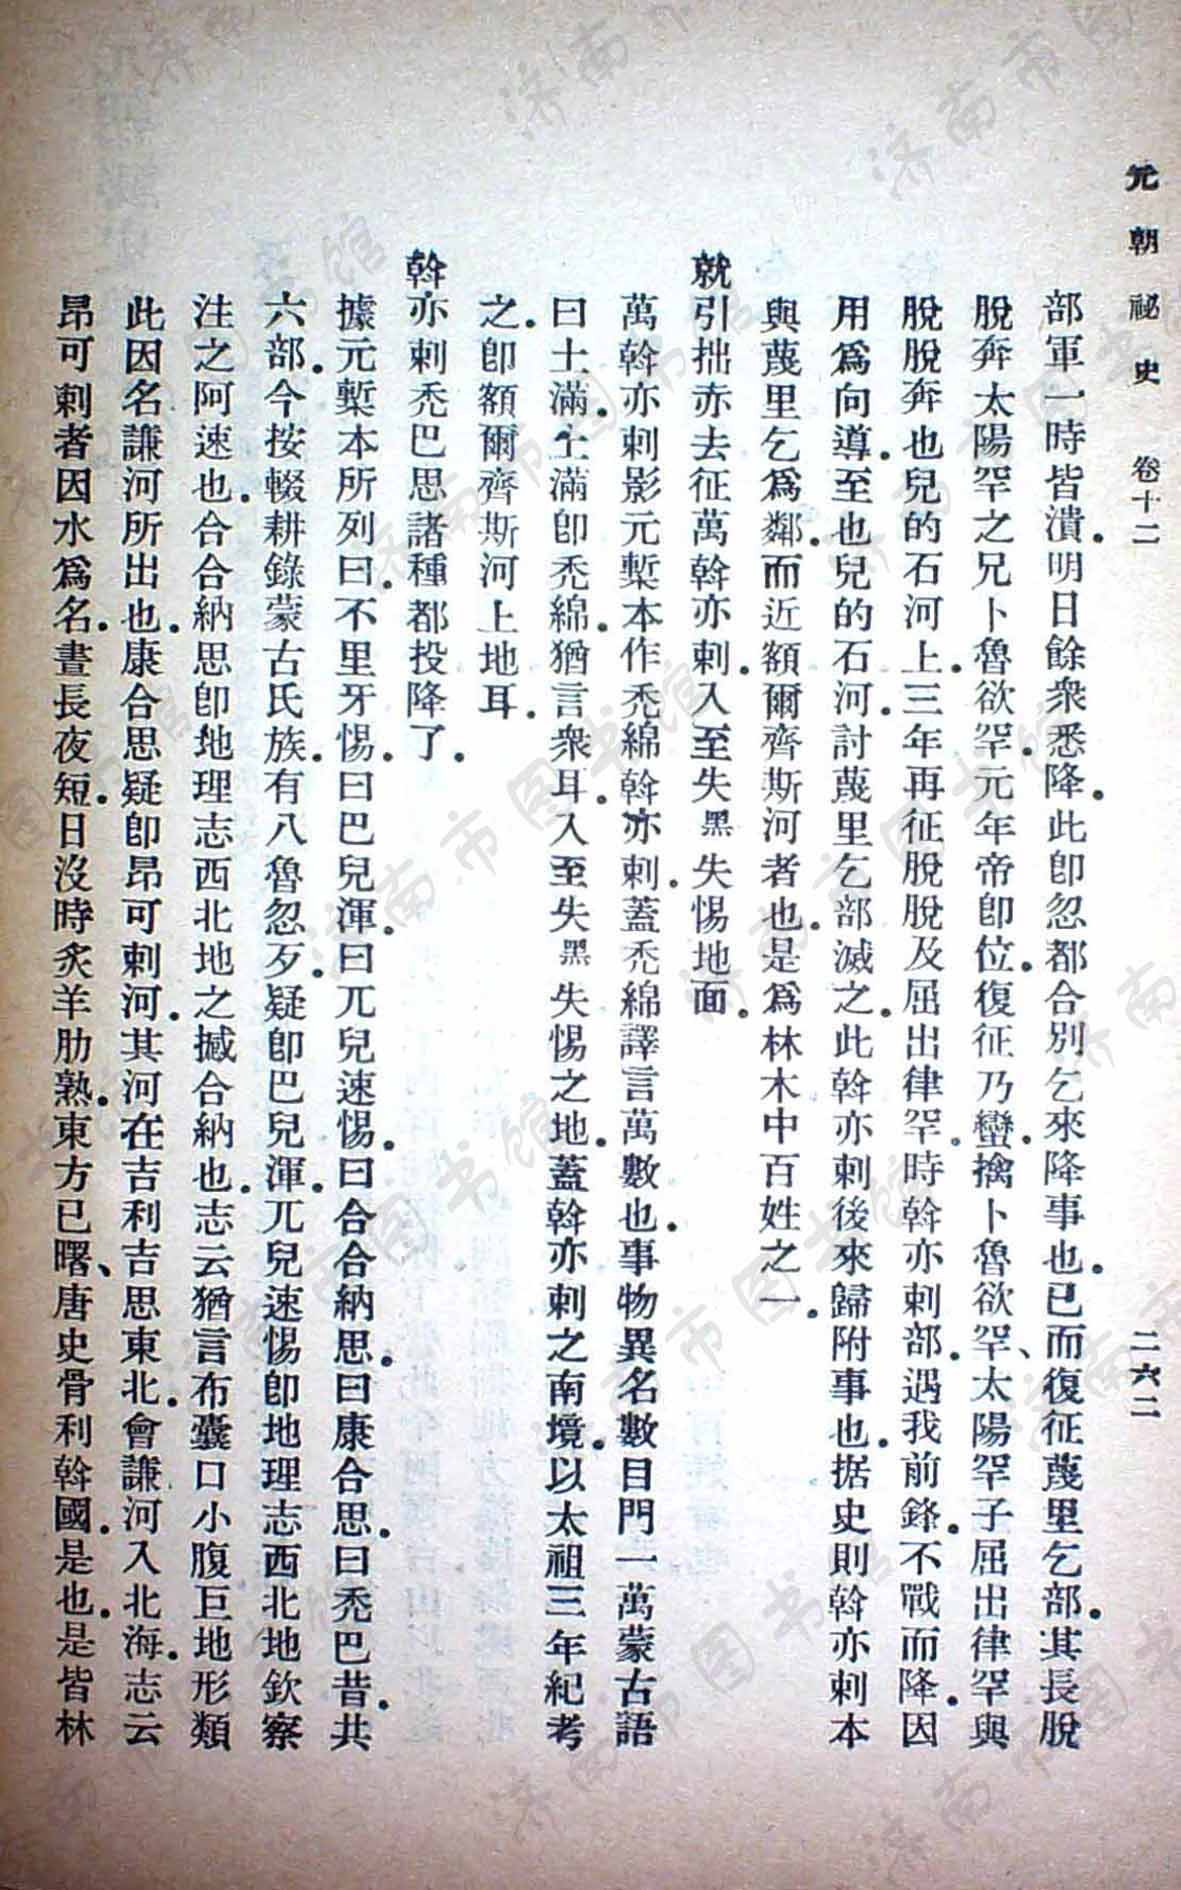 元朝祕史 卷十二 二六二
部軍一時皆潰。明日餘衆悉降。此卽忽都合別乞來降事也。已而復征蔑里乞部。其長脫
脫奔太陽罕之兄卜魯欲罕。元年帝卽位。復征乃蠻。擒卜魯欲罕、太陽罕子屈出律罕與
脫脫奔也兒的石河上。三年再征脫脫及屈出律罕。時斡亦剌部。遇我前鋒。不戰而降。因
用爲向導。至也兒的石河。討蔑里乞部滅之。此斡亦剌後來歸附事也。据史則斡亦剌本
與蔑里乞爲鄰。而近額爾齊斯河者也。是爲林木中百姓之一。
就引拙亦去征萬斡亦剌。入至失黑失惕地面。
萬斡亦剌影元槧本作禿綿斡亦剌。蓋禿綿譯言萬數也。事物異名數目門一萬蒙古語
曰土滿。土滿卽禿綿。猶言衆耳。入至失黑失惕之地。蓋斡亦剌之南境。以太祖三年紀考
之。卽額爾齊斯河上地耳。
斡亦剌禿巴思諸種都投降了。
據元槧本所列曰。不里牙惕。曰巴兒渾。曰兀兒速惕。曰合合納思。曰康合思。曰禿巴昔。共
六部。今按輟耕錄蒙古氏族。有八魯忽歹。疑卽巴兒渾。兀兒速惕卽地理志西北地欽察
注之阿速也。合合納思卽地理志西北地之撼合納也。志云猶言布囊口小腹巨地形類
此因名謙河所出也。康合思疑卽昂可剌河。其河在吉利吉思東北。會謙河入北海。志云
昂可剌者因水爲名。晝長夜短。日沒時炙羊肋熟。東方已曙、唐史骨利斡國。是也。是皆林